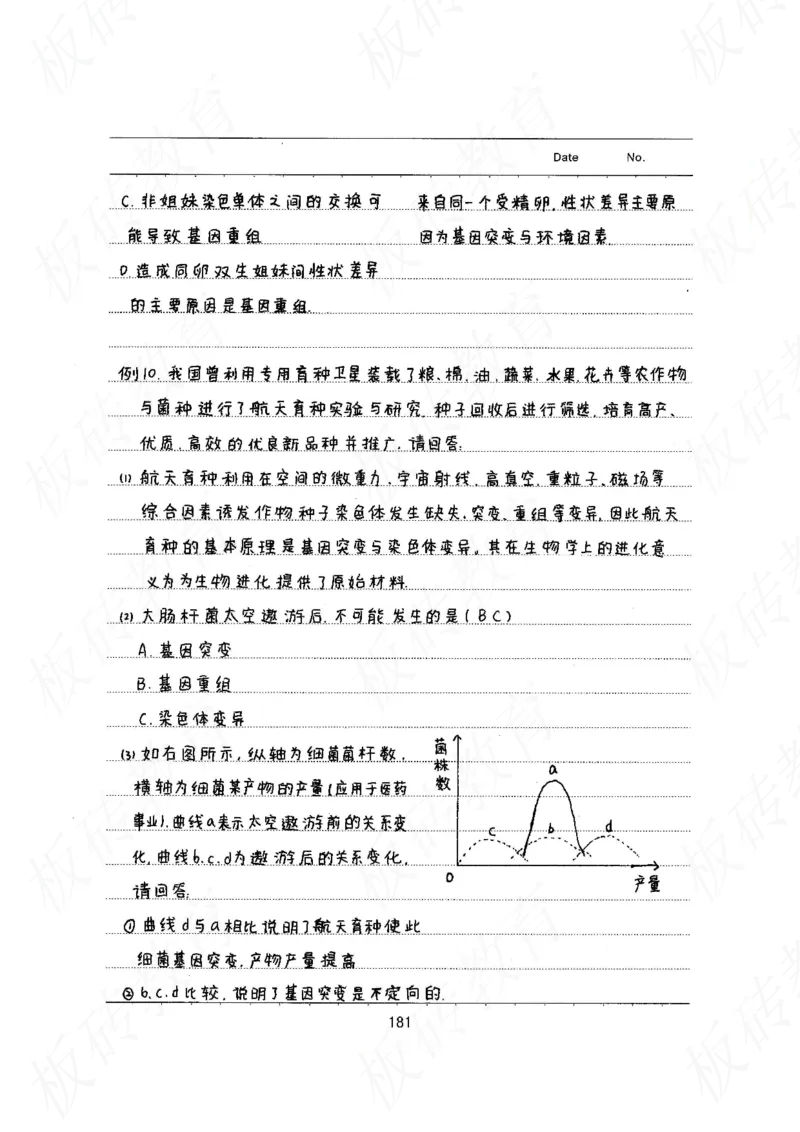 Date No.
C. 非姐妹染色单体之间的交换可
能导致基因重组
D. 造成同卵双生姐妹间性状差异
的主要原因是基因重组.
来自同一个受精卵.性状差异主要原
因为基因突变与环境因素.
例10. 我国曾利用专用育种卫星装载了粮、棉、油、蔬菜、水果、花卉等农作物
与菌种进行了航天育种实验与研究. 种子回收后进行筛选, 培育高产、
优质、高效的优良新品种并推广. 请回答:
(1) 航天育种利用在空间的微重力、宇宙射线、高真空、重粒子、磁场等
综合因素诱发作物种子染色体发生缺失、突变、重组等变异, 因此航天
育种的基本原理是基因突变与染色体变异。其在生物学上的进化意
义为为生物进化提供了原始材料.
(2) 大肠杆菌太空遨游后, 不可能发生的是(BC)
A. 基因突变
B. 基因重组
C. 染色体变异
(3) 如右图所示, 纵轴为细菌菌杆数,
横轴为细菌某产物的产量(应用于医药
事业). 曲线a表示太空遨游前的关系变
化, 曲线b.c.d为遨游后的关系变化,
请回答:
① 曲线d与a相比说明了航天育种使此
细菌基因突变, 产物产量提高
② b.c.d比较, 说明了基因突变是不定向的.
菌株数
a
c
b
d
0
产量
181
板砖教育